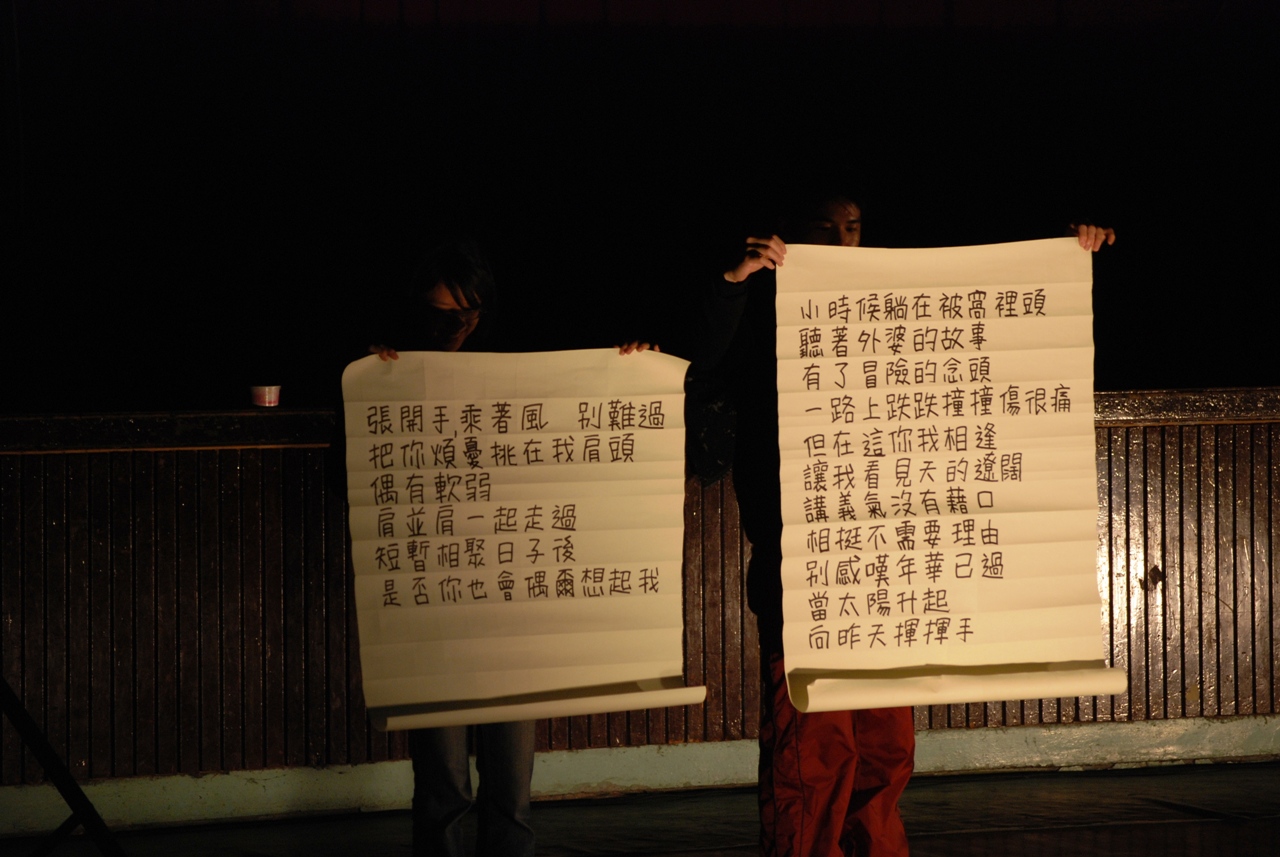 張開手,乘著風 別難過
把你煩憂挑在我肩頭
偶有軟弱
肩並肩一起走過
短暫相聚日子後
是否你也會偶爾想起我
小時候躺在被窩裡頭
聽著外婆的故事
有了冒險的念頭
一路上跌跌撞撞傷很痛
但在這你我相逢
讓我看見天的遼闊
講義氣沒有藉口
相挺不需要理由
別感嘆年華已過
當太陽升起
向昨天揮揮手